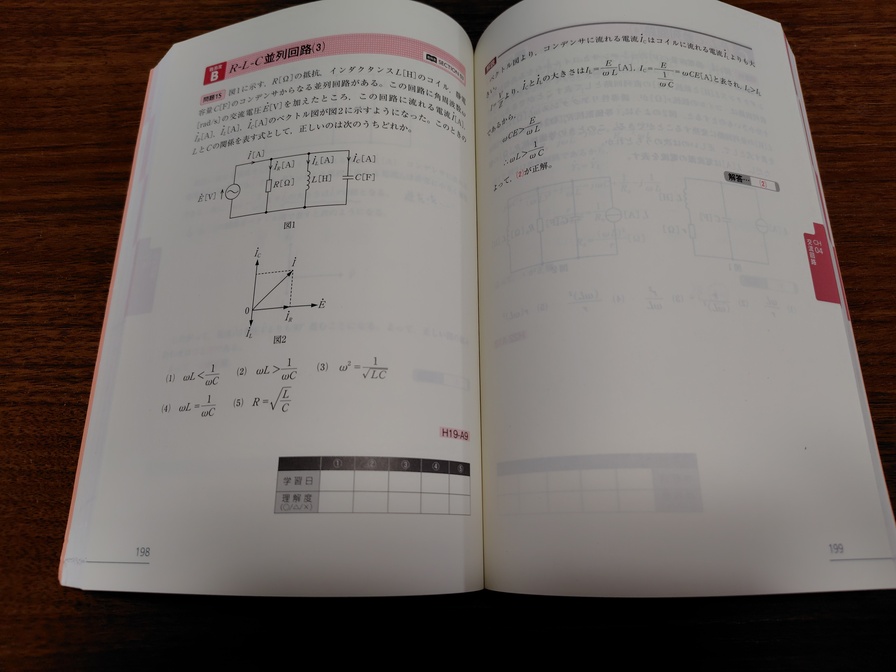 重要度
B
R-L-C並列回路(3)
SECTION
問題15 図1に示す、R[Ω]の抵抗、インダクタンスL[H]のコイル、静電
容量C[F]のコンデンサからなる並列回路がある。この回路に角周波数ω
[rad/s]の交流電圧Ė[V]を加えたところ、この回路に流れる電流İ[A]、
İR[A]、İL[A]、İC[A]のベクトル図が図2に示すようになった。このときの
LとCの関係を表す式として、正しいのは次のうちどれか。
İ[A]
İR[A] İL[A] İC[A]
Ė[V] R[Ω] L[H] C[F]
図1
İC
İ
0 İR Ė
İL
図2
(1) ωL<1/ωC (2) ωL>1/ωC (3) ω²=1/√LC
(4) ωL=1/ωC (5) R=√L/C
H19-A9
① ② ③ ④ ⑤
学習日
理解度
(○/△/×)
198
解説
ベクトル図より、コンデンサに流れる電流İCはコイルに流れる電流İLよりも大
きい。
より、İLとİCの大きさはIL=E/ωL[A]、IC=E/(1/ωC)=ωCE[A]と表され、IC>IL
であるから、
ωCE>E/ωL
∴ωL>1/ωC
よって、(2)が正解。
解答… (2)
CH 04
交流回路
199